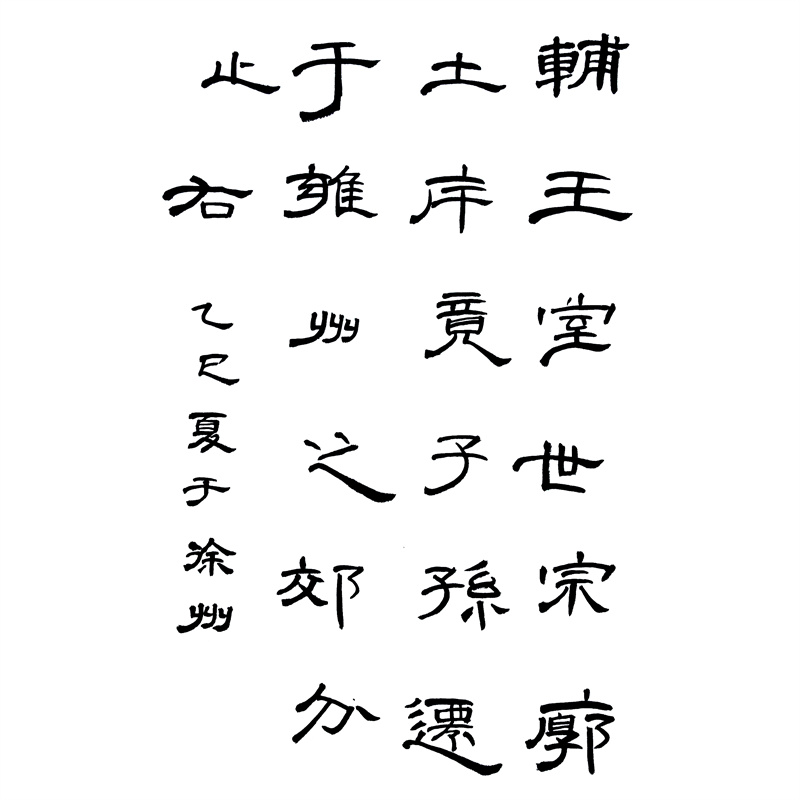 輔王室世宗廓
土斥竟子孫遷
于雍州之郊分
止右 乙巳夏于徐州